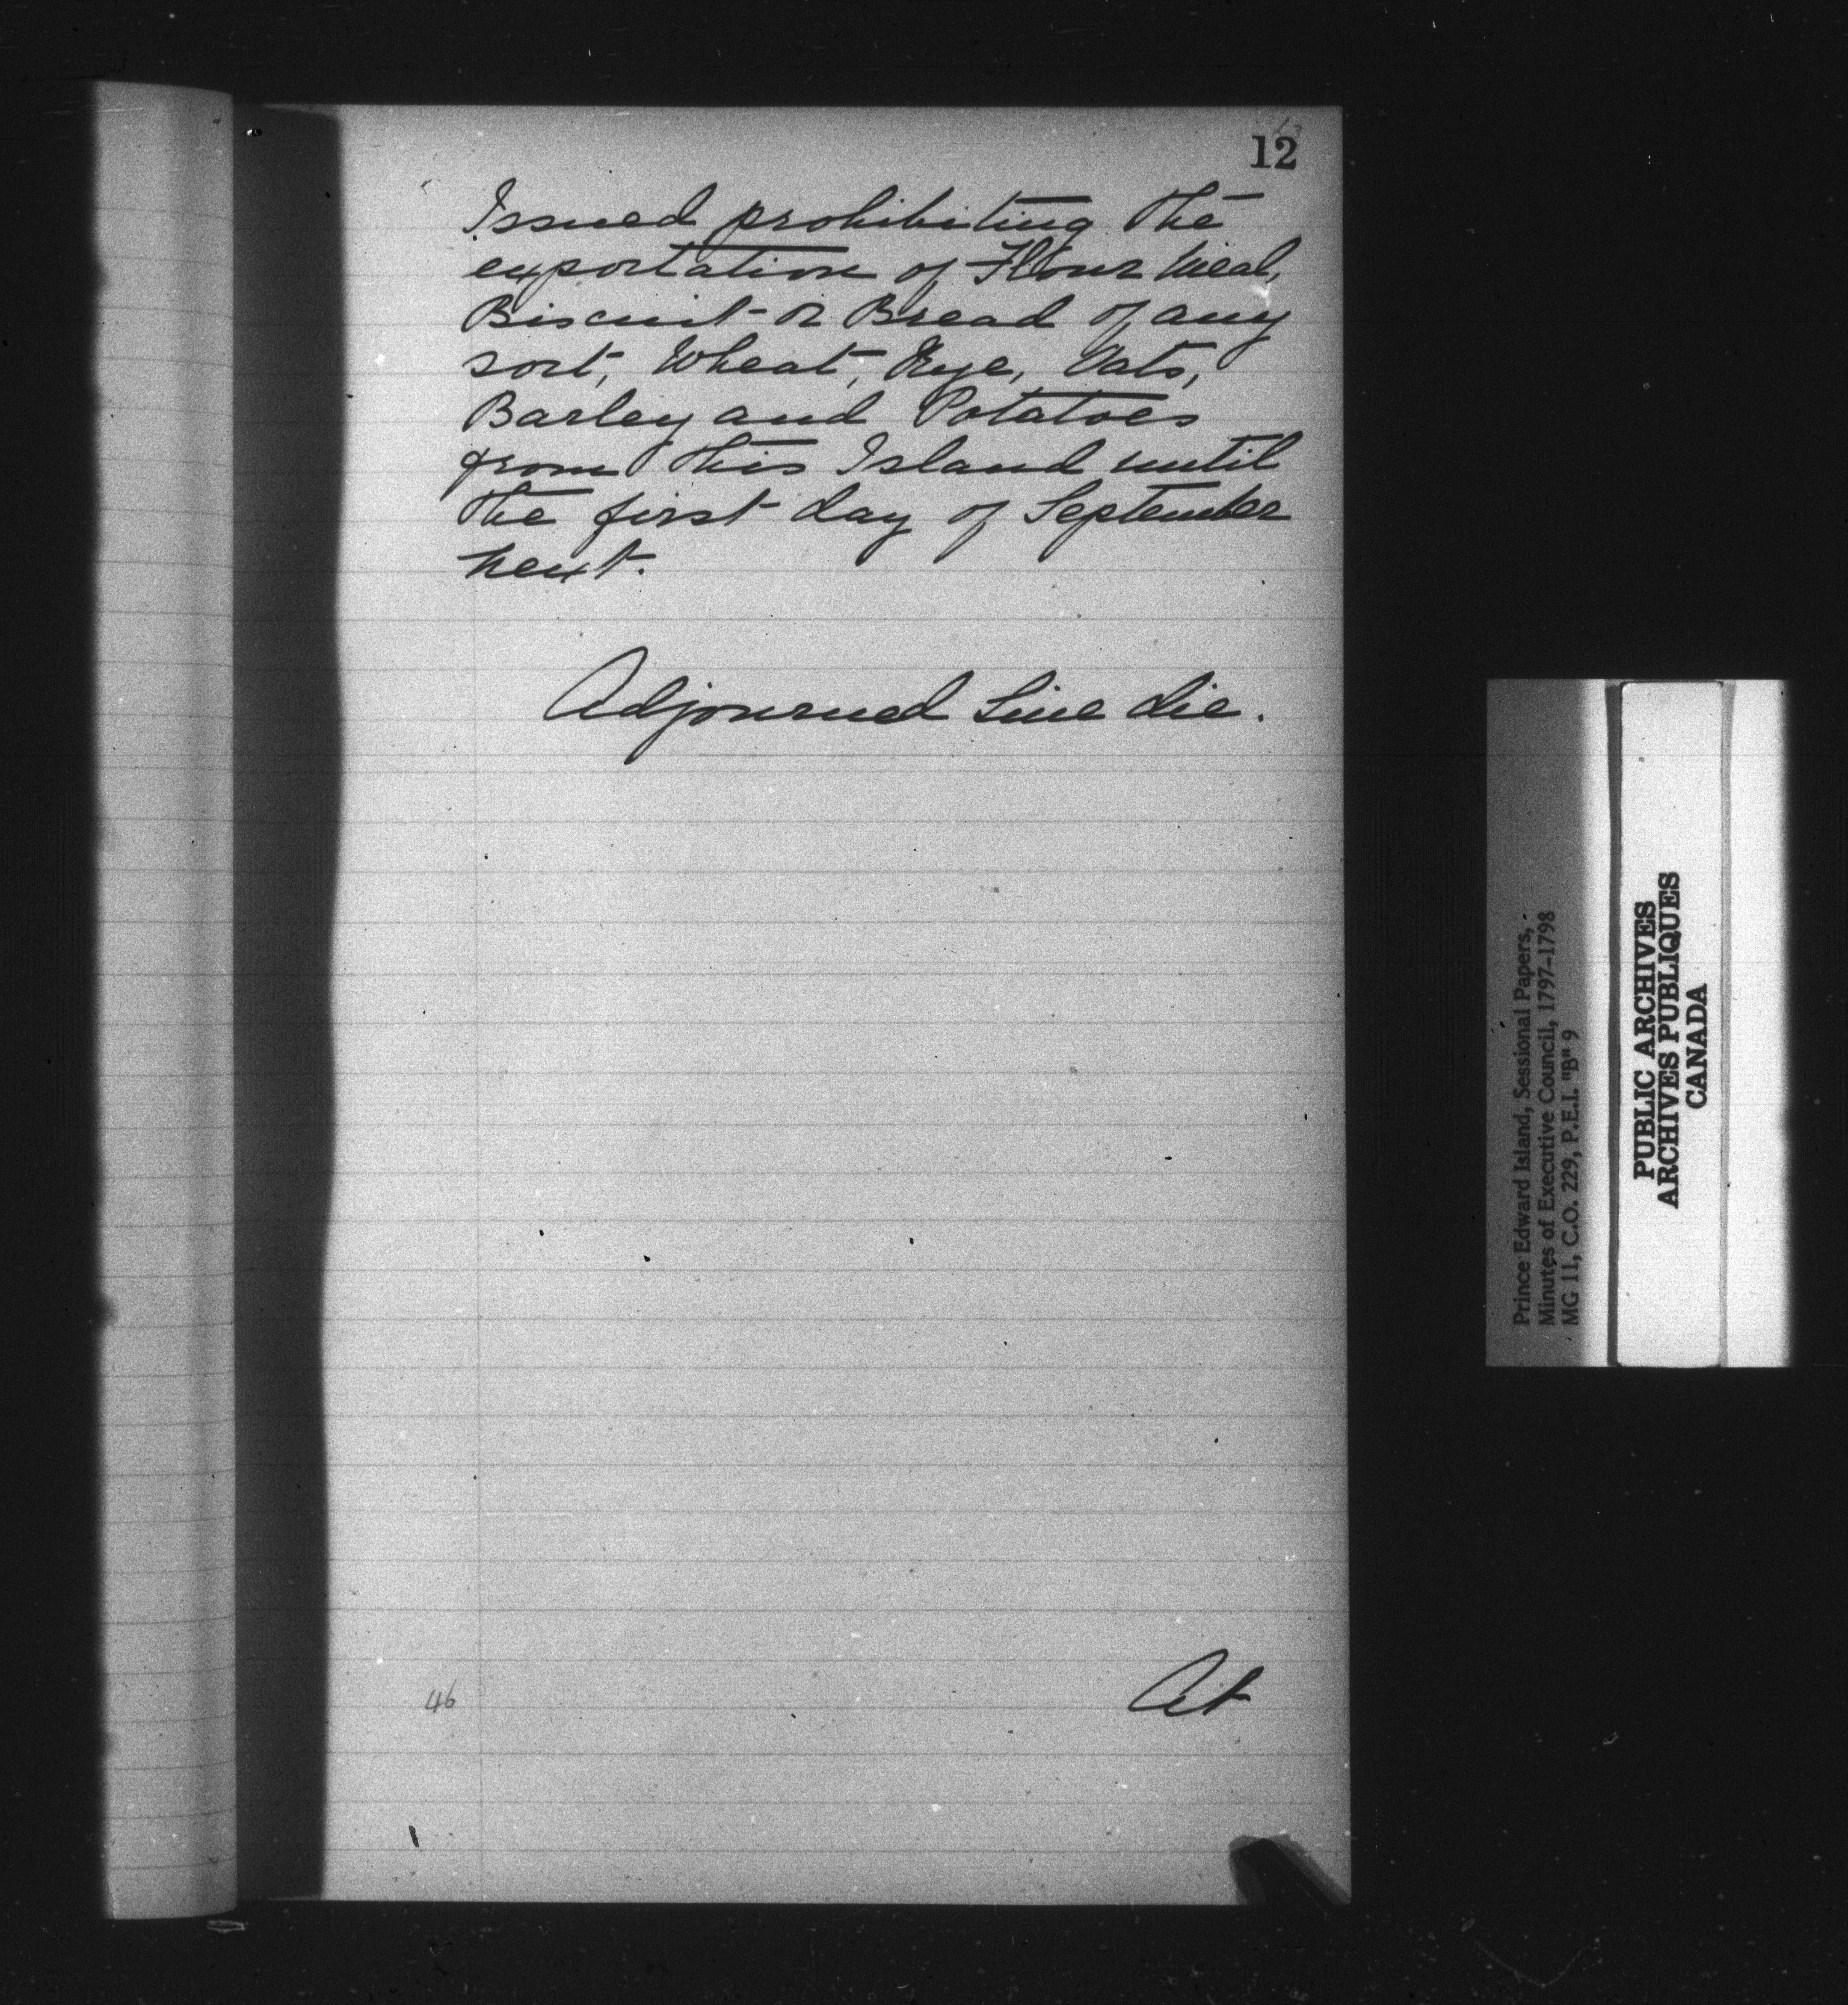 12
Issued prohibiting the
exportation of Flour Meal,
Biscuit or Bread of any
sort, Wheat, Rye, Oats,
Barley and Potatoes
from this Island until
the first day of September
next.
Adjourned Sine die.
46
At
Prince Edward Island, Sessional Papers, -
Minutes of Executive Council, 1797-1798
MG 11, C.O. 229, P.E.I. "B" 9
PUBLIC ARCHIVES
ARCHIVES PUBLIQUES
CANADA